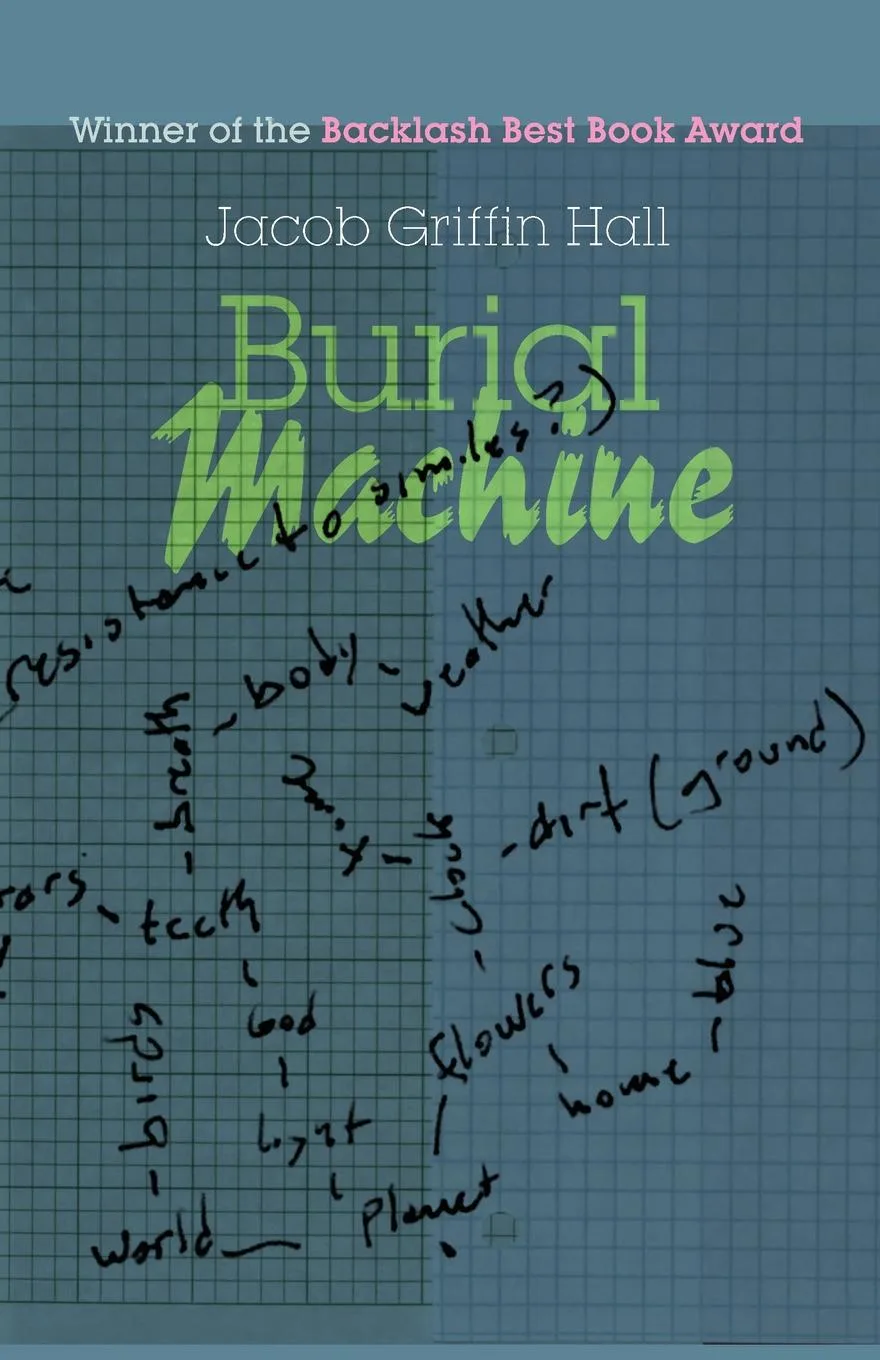 Winner of the Backlash Best Book Award
Jacob Griffin Hall
Burial
Machine
resistance to smiles?)
breath - body - weather
dirt (ground)
teeth
God
birds
flowers
home
light
planet
world